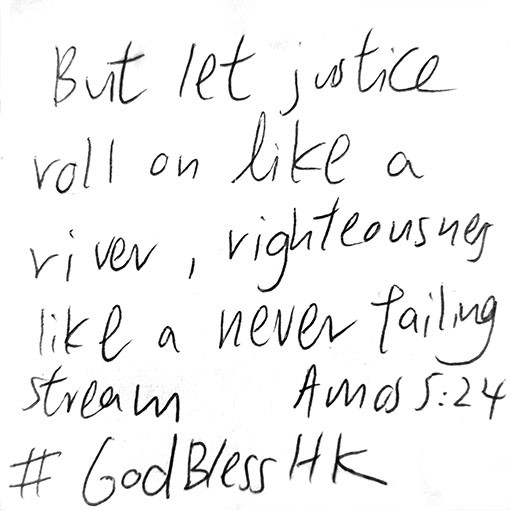 But let justice
roll on like a
river, righteousness
like a never failing
stream Amos 5:24
#GodBlessHK